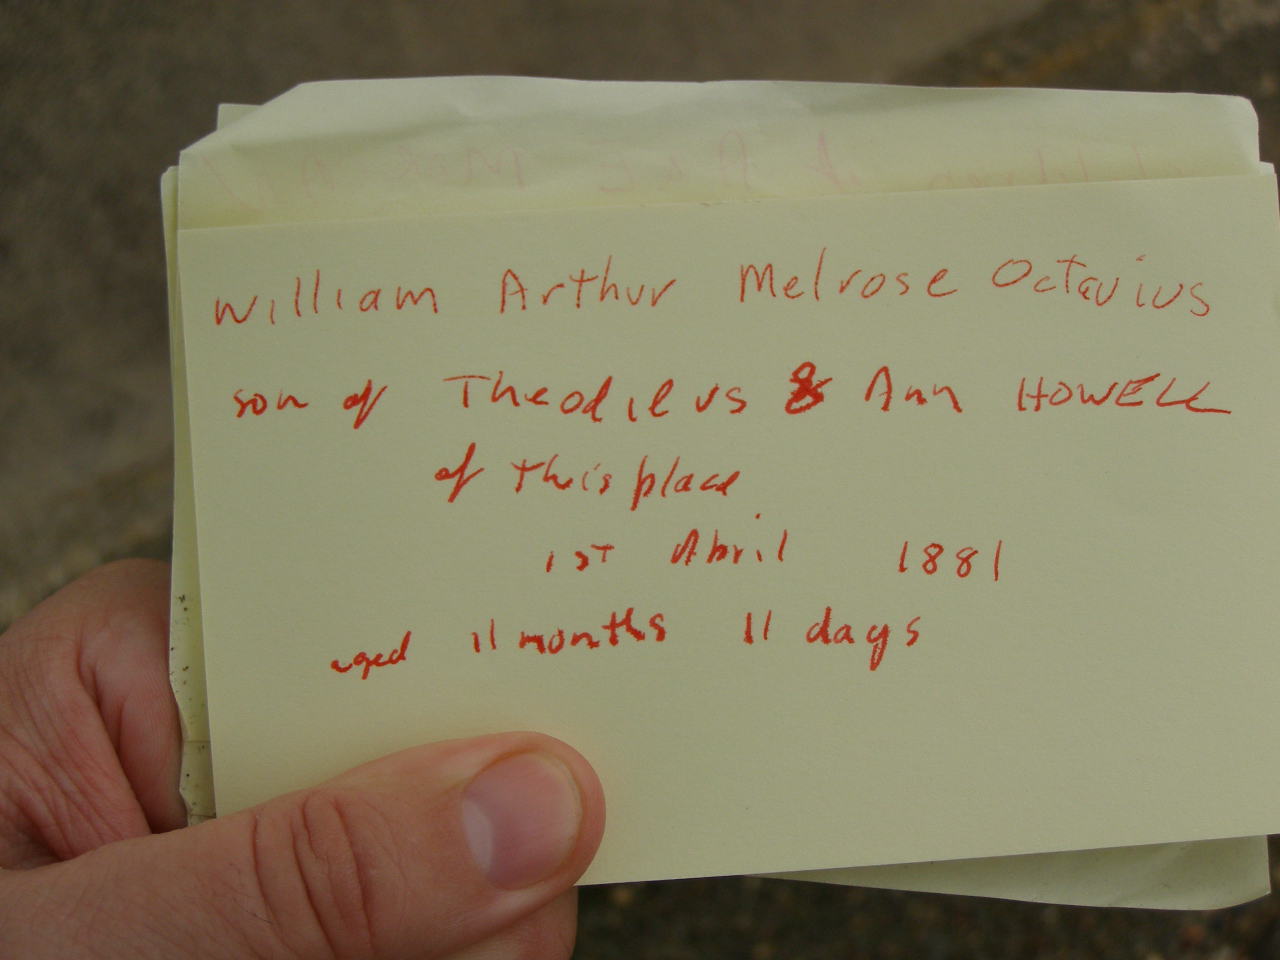 William Arthur Melrose Octavius
son of Theodilus & Ann HOWELL
of this place
1st April 1881
aged 11 months 11 days